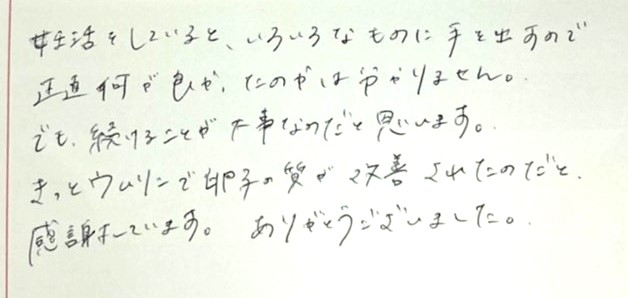 妊活をしていると、いろいろなものに手を出すので
正直何が良かったのかは分かりません。
でも、続けることが大事なのだと思います。
きっとウムリンで卵子の質が改善されたのだと、
感謝しています。 ありがとうございました。